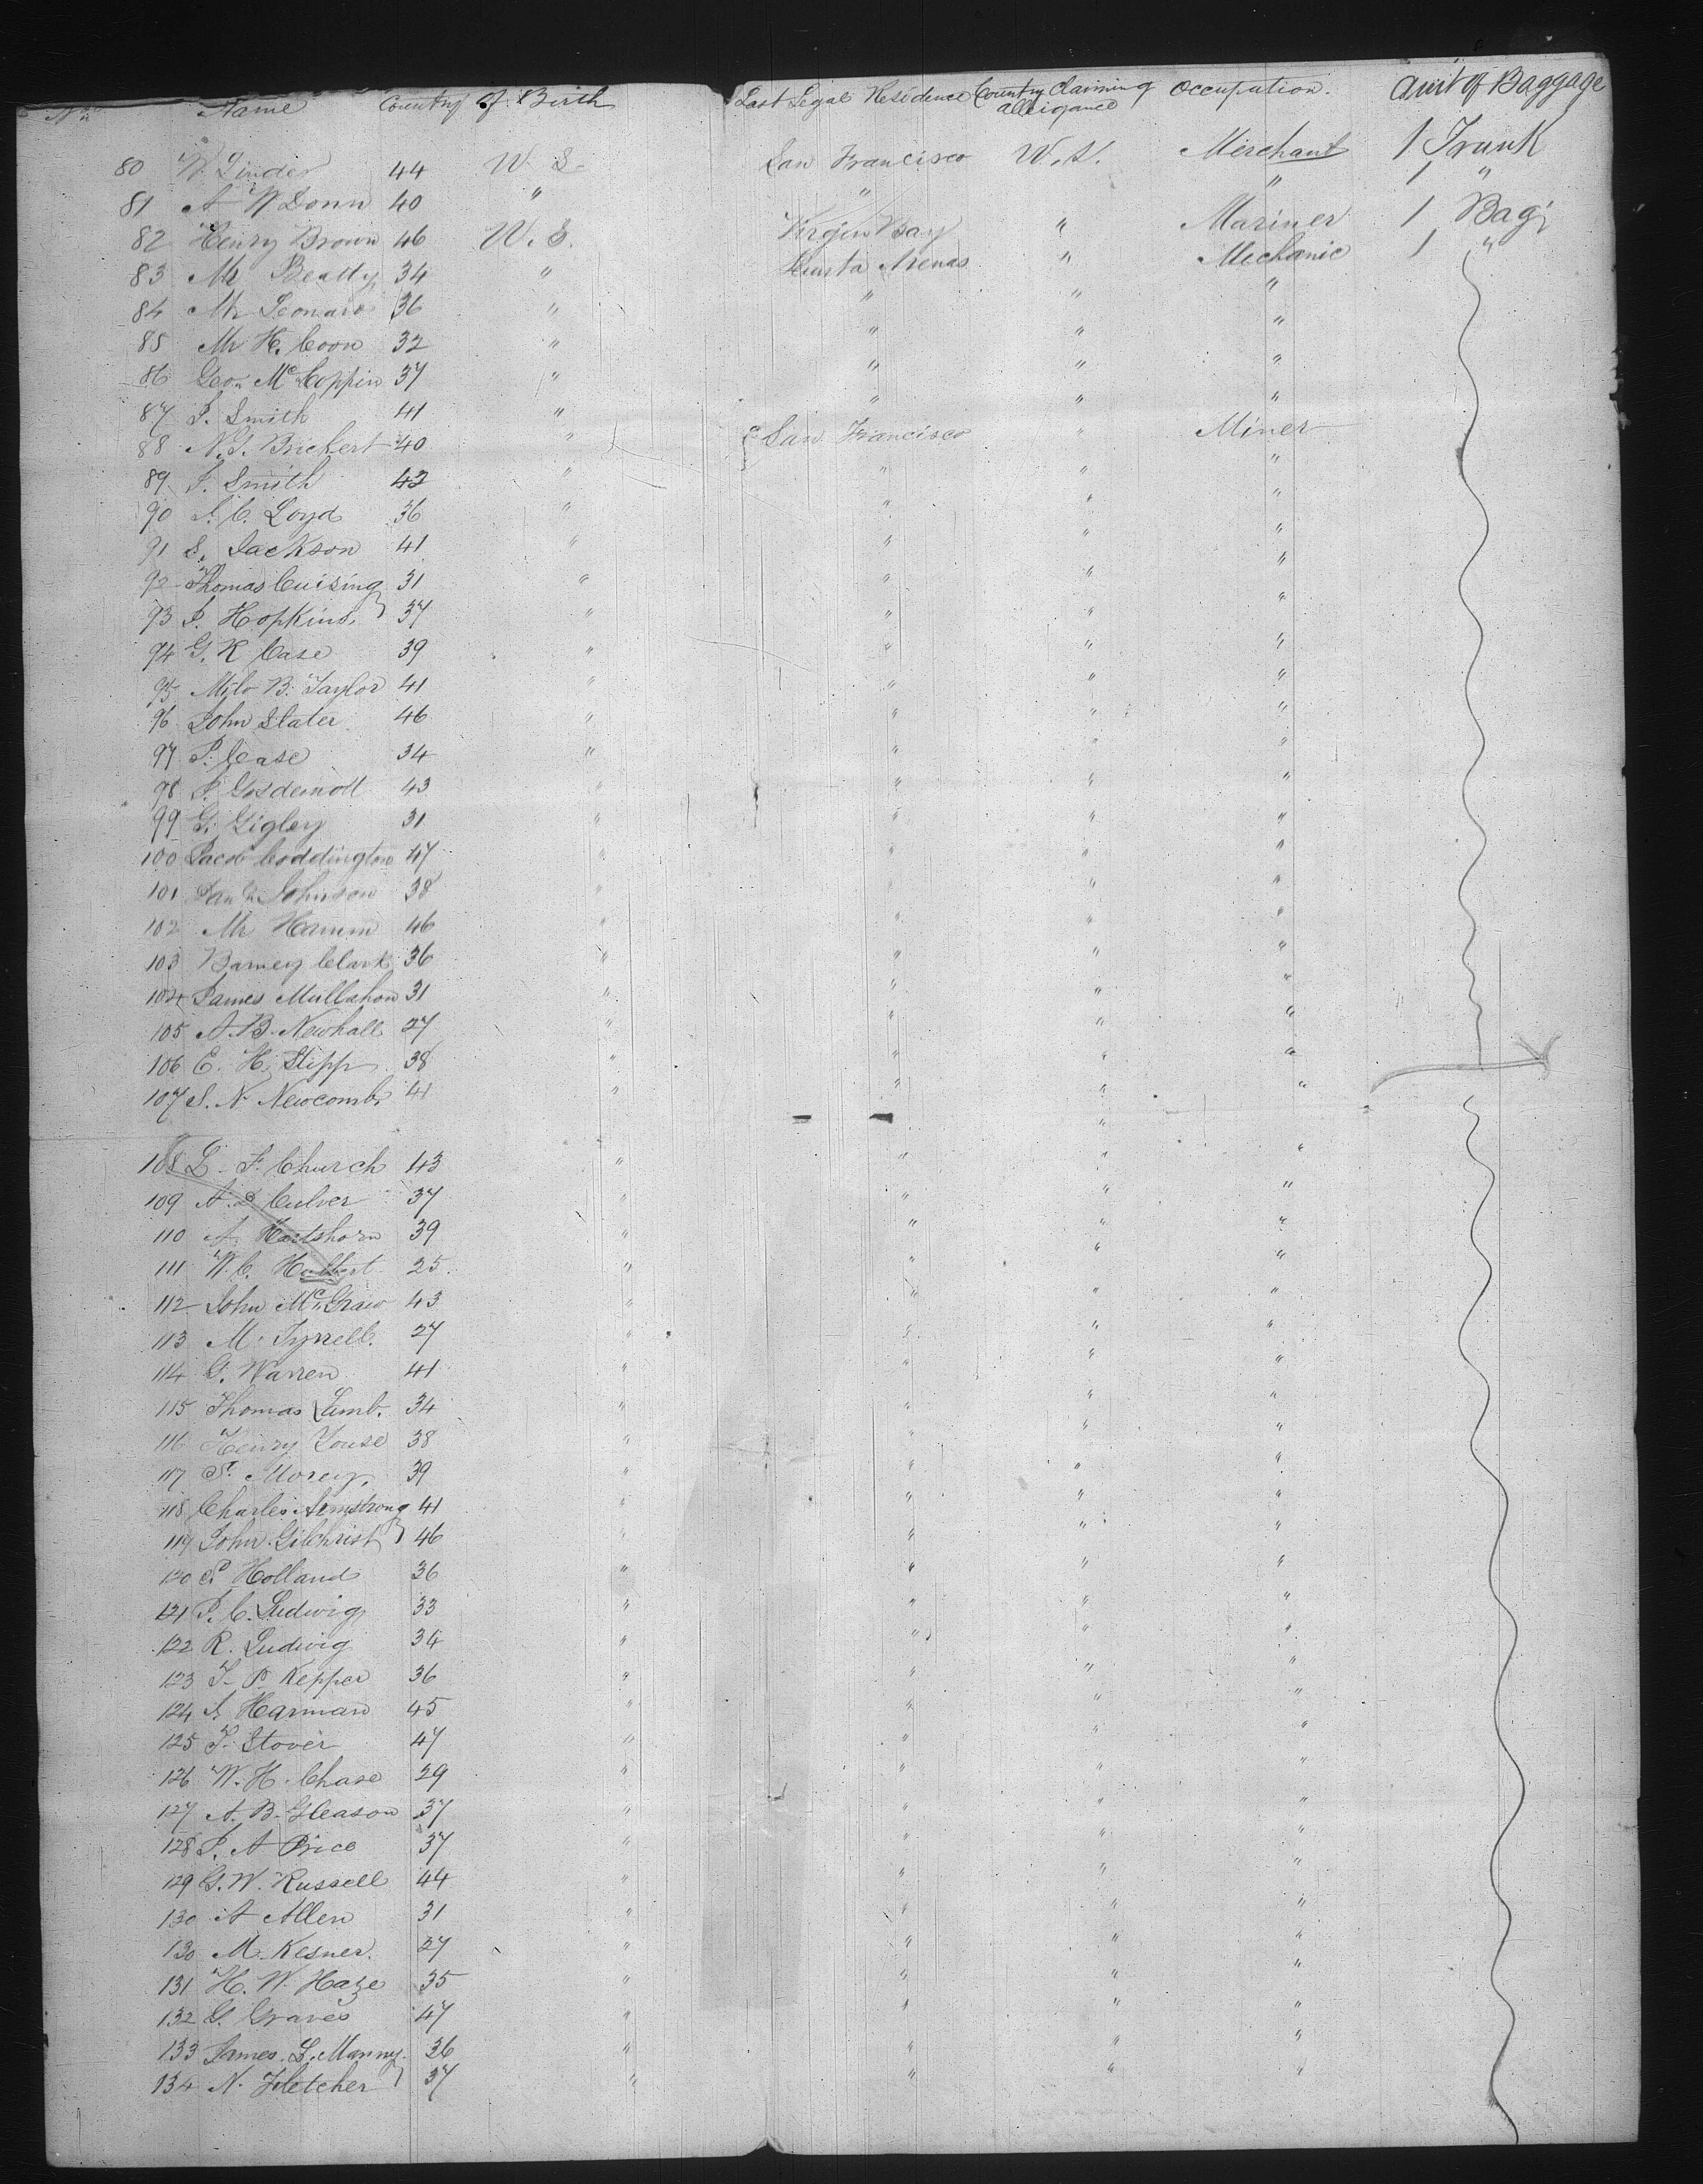 No Name Country of Birth Last Legal Residence Country Claiming Alleigance Occupation. Amt of Baggage
80 W. Linder 44 U S San Francisco U.S. Merchant 1 Trunk
81 A W Donn 40 " " " 1 "
82 Henry Brown 46 U.S. Virgin Bay " Mariner 1 Bag
83 Mr Beatty 34 " Punta Arenas " Mechanic 1 "
84 Mr Leonard 36 " " " "
85 Mr H. Coon 32 " " " "
86 Geo. McCoppin 37 " " " "
87 P. Smith 41 " " " "
88 N.S. Brickert 40 " San Francisco " Miner
89 J. Smith 42 " " " "
90 S. C. Loyd 36 " " " "
91 S. Jackson 41 " " " "
92 Thomas Cuising 31 " " " "
93 J. Hopkins 37 " " " "
94 G. K Case 39 " " " "
95 Milo B. Taylor 41 " " " "
96 John Slater 46 " " " "
97 P. Case 34 " " " "
98 43 " " " "
99 G. Gigley 31 " " " "
100 Jacob Coddington 47 " " " "
101 Johnson 38 " " " "
102 Mr Hamm 46 " " " "
103 Barney Clark 36 " " " "
104 James Mullahon 31 " " " "
105 A. B. Newhall 27 " " " "
106 E. H. Stipp 38 " " " "
107 S. N. Newcomb 41 " " " "
108 L. F. Church 43 " " " "
109 A. D Culver 37 " " " "
110 A. Hartshorn 39 " " " "
111 W. C. Hulbert 25 " " " "
112 John McGraw 43 " " " "
113 M. Tyrrell. 27 " " " "
114 G. Warren 41 " " " "
115 Thomas Lumb. 34 " " " "
116 Henry Youse 38 " " " "
117 S. Morey 39 " " " "
118 Charles Armstrong 41 " " " "
119 John Gilchrist 46 " " " "
120 P Holland 36 " " " "
121 P. C. Ludwig 33 " " " "
122 R. Ludwig 34 " " " "
123 T. P. Kepper 36 " " " "
124 S. Harman 45 " " " "
125 T. Stover 47 " " " "
126 W. H. Chase 29 " " " "
127 A. B. Gleason 37 " " " "
128 J. A Price 37 " " " "
129 G. W. Russell 44 " " " "
130 A Allen 31 " " " "
130 M. Kesner. 27 " " " "
131 H. W. Haze 35 " " " "
132 G. Graves 47 " " " "
133 James. L. Manny. 36 " " " "
134 N. Fletcher 37 " " " "